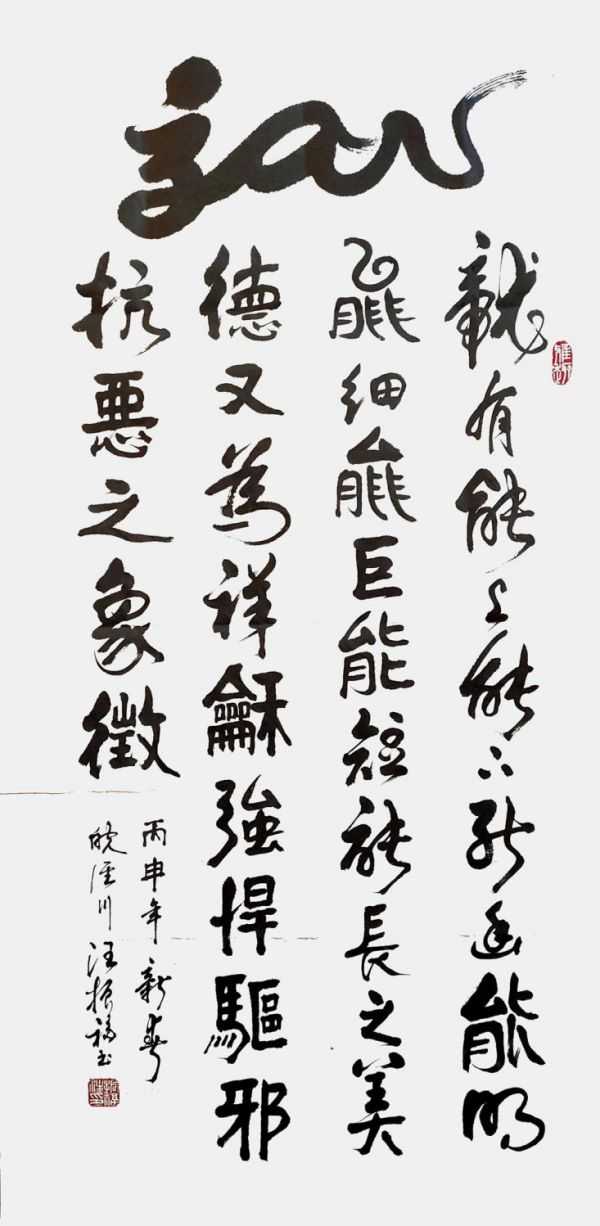 龍
龍有能上能下能幽能明
能細能巨能短能長之美
德又為祥龢強悍驅邪
抗惡之象徵
丙申年新春
皖涇川汪振福書